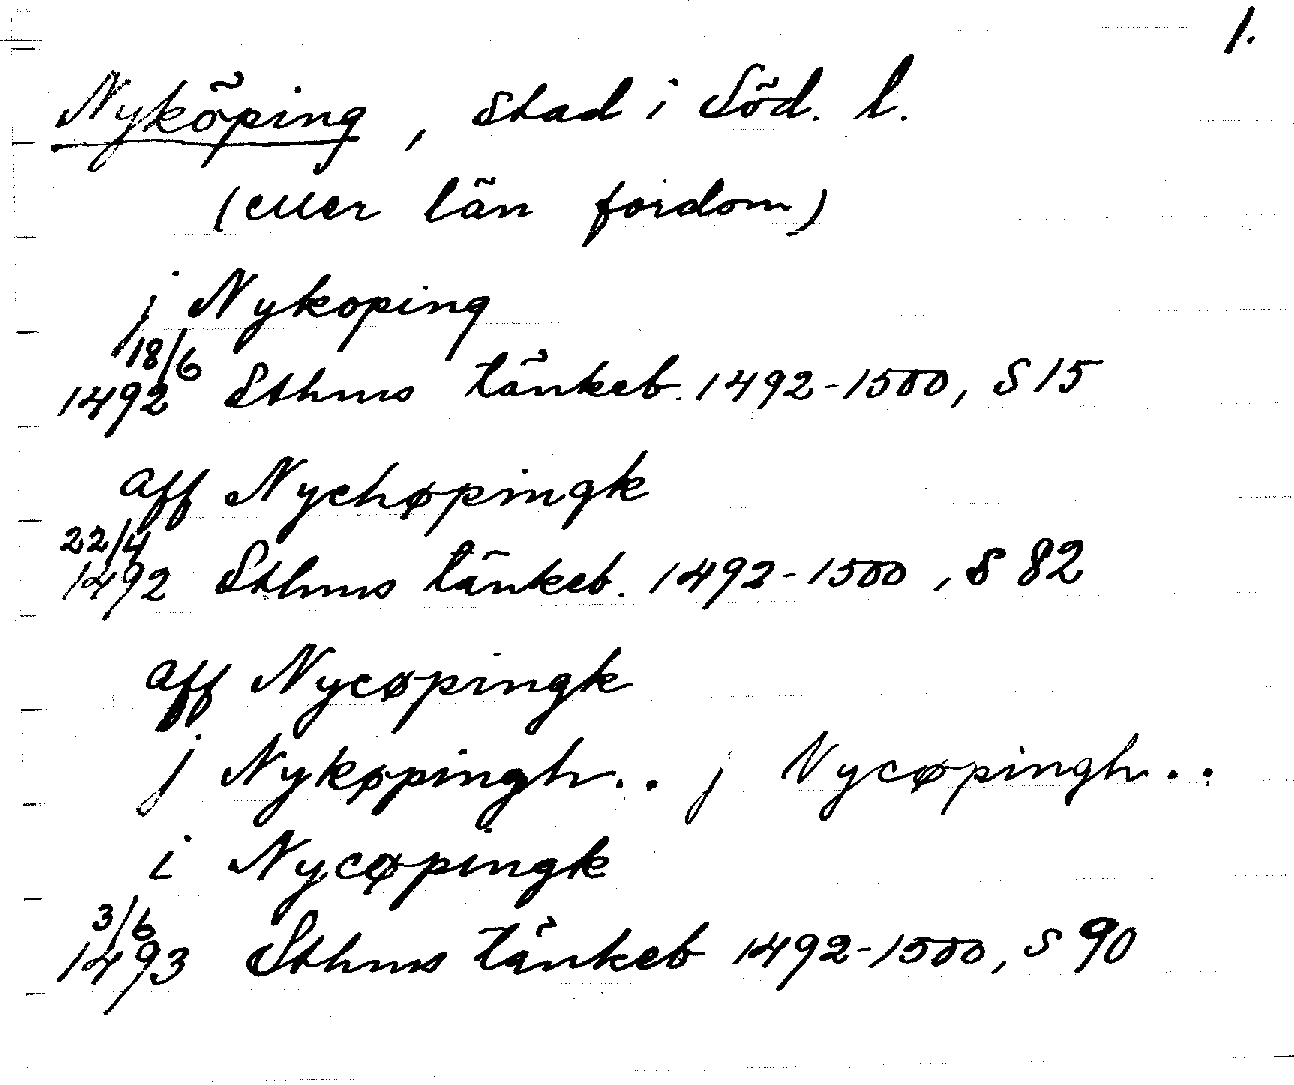 1.
Nyköping, stad i Söd. l.
(eller län fordom)
j Nykoping
18/6
1492 Sthms tänkeb. 1492-1500, S 15
aff Nychøpingk
22/4
1492 Sthms tänkeb. 1492-1500, S 82
aff Nycøpingk
j Nykøpingh.. j Nycøpingh..
i Nycøpingk
3/6
1493 Sthms tänkeb 1492-1500, S 90